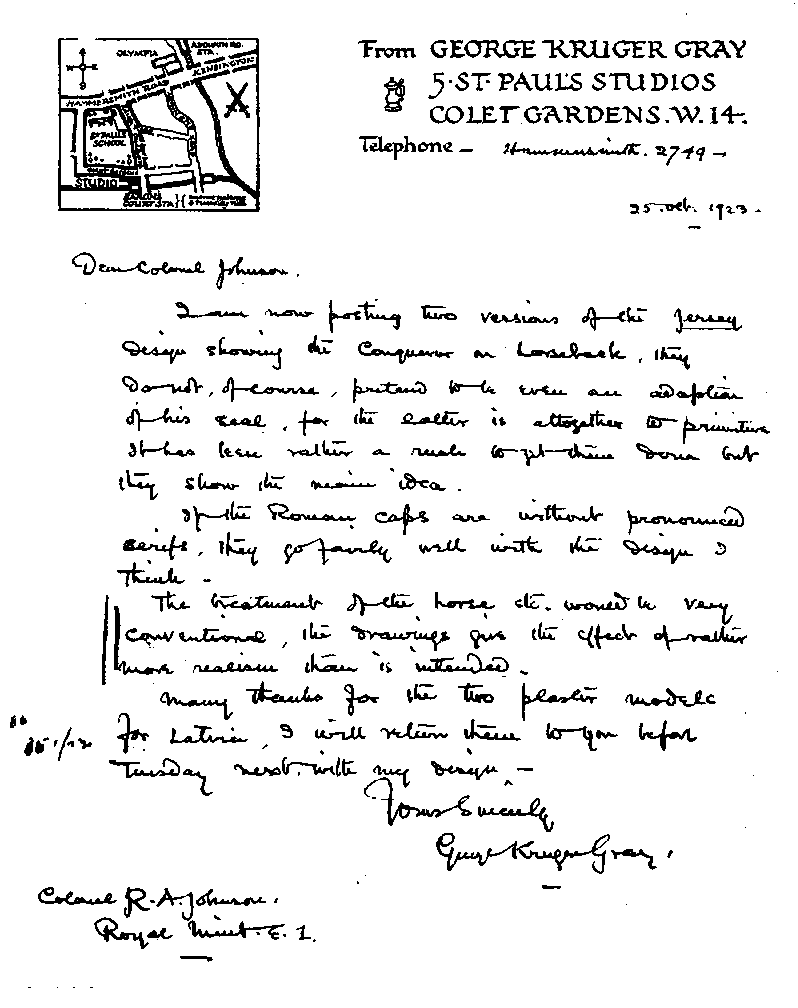 From GEORGE KRUGER GRAY
5·ST. PAUL'S STUDIOS
COLET GARDENS. W. 14.
Telephone — Hammersmith. 2749 —
OLYMPIA
ADDISON RD. STA.
KENSINGTON
HAMMERSMITH ROAD
W E
ST PAULS SCHOOL
STUDIO
BARONS COURT STA
25. Oct. 1923.
Dear Colonel Johnson.
I am now posting two versions of the Jersey
design showing the Conqueror on horseback, they
do not, of course, pretend to be even an adaption
of his seal, for the latter is altogether to primitive
It has been rather a rush to get them done but
they show the main idea.
If the Roman caps are without pronounced
serifs, they go fairly well with the design I
think.
The treatment of the horse etc. would be very
conventional, the drawings give the effect of rather
more realism than is intended.
Many thanks for the two plaster models
for Latvia, I will return them to you before
Tuesday next. with my design. —
Yours Sincerely
George Kruger Gray.
Colonel R. A. Johnson.
Royal Mint. E. 1.